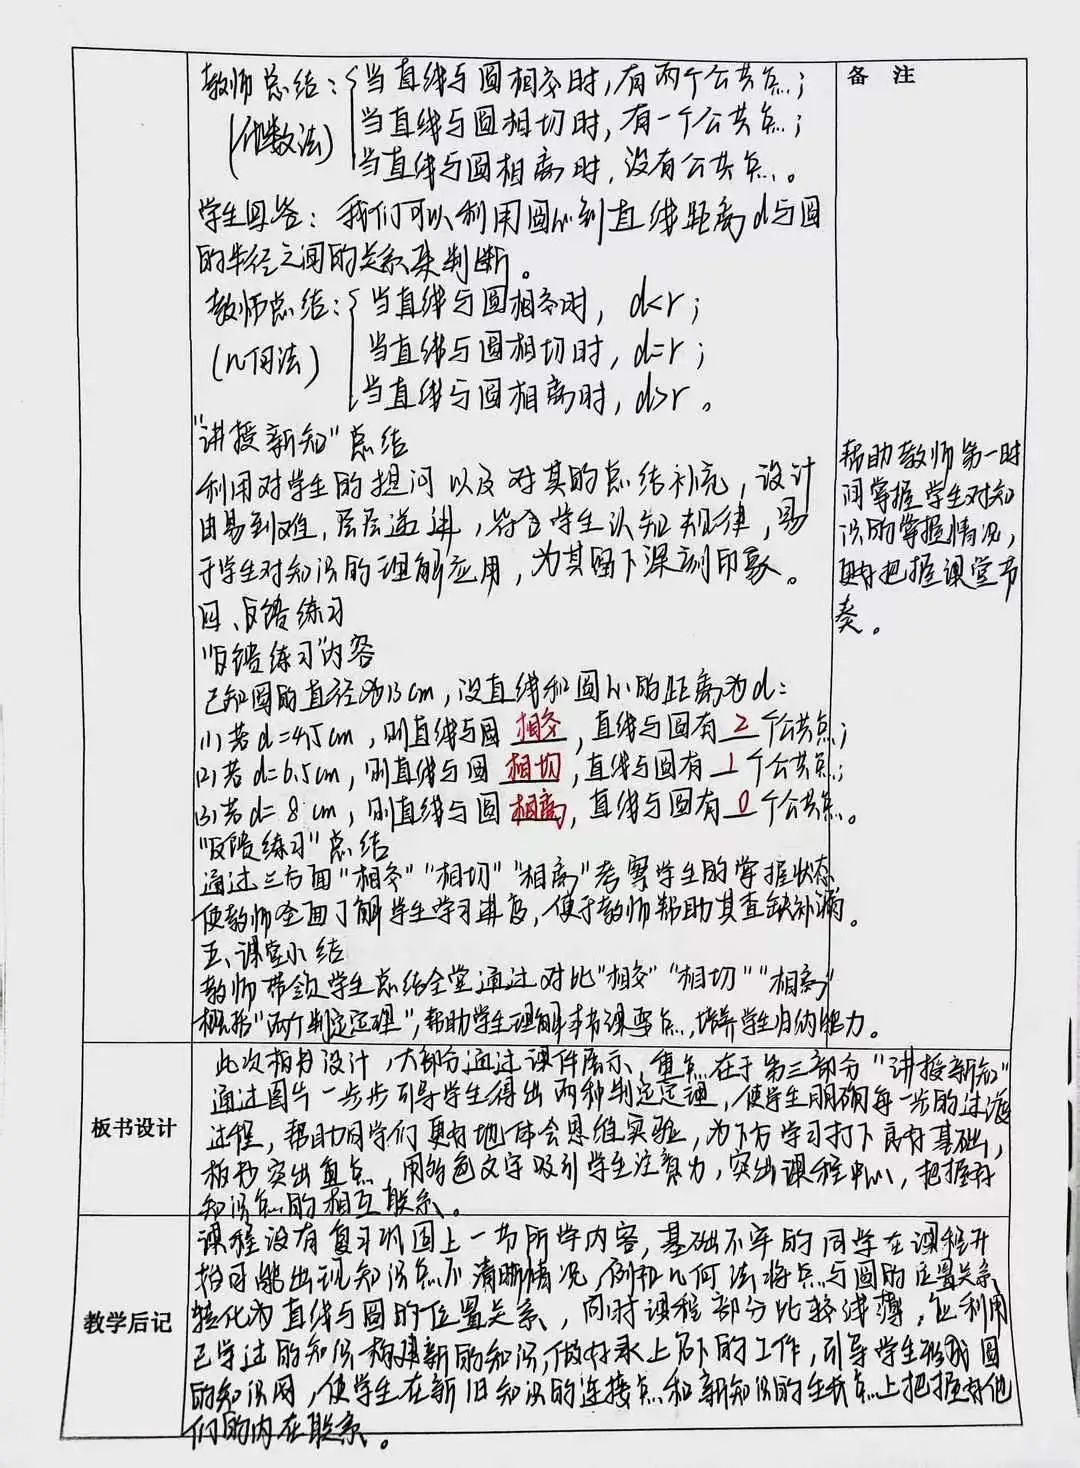 备 注
教师总结：当直线与圆相交时，有两个公共点；
(代数法) 当直线与圆相切时，有一个公共点；
当直线与圆相离时，没有公共点。
学生回答：我们可以利用圆心到直线距离d与圆
的半径之间的关系来判断。
教师总结：当直线与圆相交时，d<r；
(几何法) 当直线与圆相切时，d=r；
当直线与圆相离时，d>r。
"讲授新知"总结
利用对学生的提问以及对其的总结补充，设计
由易到难，层层递进，符合学生认知规律，易
于学生对知识的理解应用，为其留下深刻印象。
帮助教师第一时
间掌握学生对知
识的掌握情况，
更好把握课堂节
奏。
四、反馈练习
"反馈练习"内容
已知圆的直径为13cm，设直线和圆心的距离为d：
(1)若d=4.5cm，则直线与圆 相交，直线与圆有 2 个公共点；
(2)若d=6.5cm，则直线与圆 相切，直线与圆有 1 个公共点；
(3)若d=8cm，则直线与圆 相离，直线与圆有 0 个公共点。
"反馈练习"总结
通过三方面"相交""相切""相离"考察学生的掌握状态
使教师全面了解学生学习进度，便于教师帮助其查缺补漏。
五、课堂小结
教师带领学生总结全堂通过对比"相交""相切""相离"
概括"两个判定定理"，帮助学生理解本书课重点，培养学生归纳能力。
板书设计
此次板书设计，大部分通过课件展示，重点在于第三部分"讲授新知"
通过图片一步步引导学生得出两种判定定理，使学生明确每一步的过渡
过程，帮助同学们更好地体会思维实验，为下方学习打下良好基础，
板书突出重点，用的色文字吸引学生注意力，突出课程中心，把握好
知识点的相互联系。
教学后记
课程没有复习巩固上一节所学内容，基础不牢的同学在课程开
始可能出现知识点不清晰情况，例如几何法将点与圆的位置关系
转化为直线与圆的位置关系，同时课程部分比较浅薄，应利用
已学过的知识构建新的知识，做好承上启下的工作，引导学生形成圆
的知识网，使学生在新旧知识的连接点和新知识的生长点上把握好他
们的内在联系。